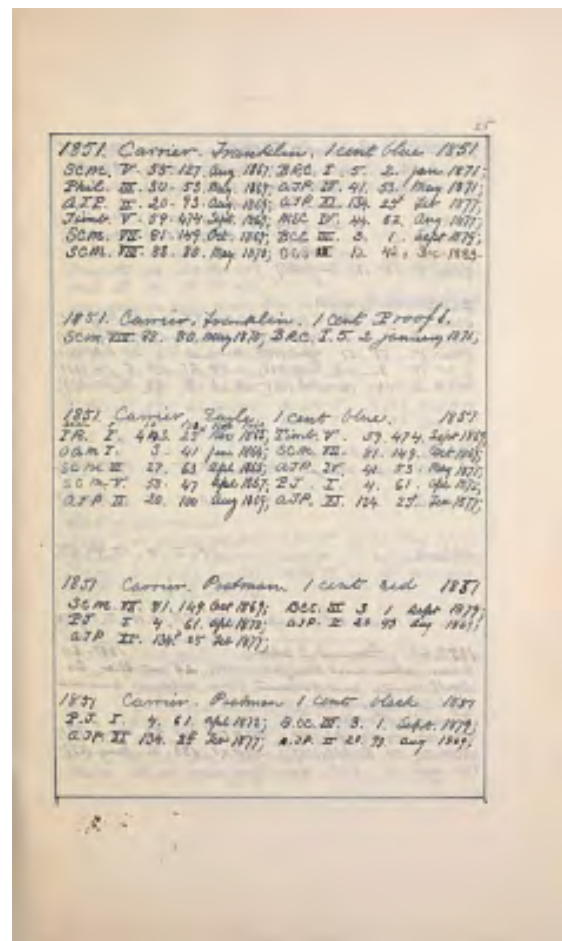 25
1851. Carrier. Franklin. 1 cent blue 1851
SCM. V. 55. 127. Aug 1867; BRC. I. 5. 2. Jan 1871;
Phil. III. 30-53. May 1869; AJP. IV. 41. 53. May 1871;
AJP. II. 20-93. Aug 1869; AJP. XI. 134. 25. Feb 1877;
Timb. V. 59. 474 Sept. 1869; IV. 44. 82. Aug 1877;
SCM. VII. 81. 149. Oct. 1869; BCC III. 3. 1. Sept 1879;
SCM. VIII. 88. 80. May 1870; 12. 42.
1851. Carrier. Franklin. 1 cent Proofs.
SCM. VIII. 88. 80. May 1870; BRC. I. 5. 2 January 1871;
1851 Carrier, Eagle, 1 cent blue. 1851
I. 25 Nov 1863; Timb. V. 59. 474. Sept 1869
I. 3. 41 June 1864; SCM. VII. 81. 149. Oct 1869;
SCM III 27. 63 Apl 1865; AJP. IV. 41. 53. May 1871;
SCM. V. 53. 47 Apl 1867; PJ. I. 4. 61. Apl 1872;
AJP. II. 20. 100 Aug 1869; AJP. XI. 134. 25. Feb 1877;
1851 Carrier. Postman. 1 cent red 1851
SCM. VII. 81. 149. Oct 1869; BCC. III 3 1 Sept 1879;
PJ I 4. 61. Apl 1872; AJP. II 20 93 Aug 1869;
AJP. 134. 25 Feb 1877;
1851 Carrier. Postman 1 cent black 1851
P.J. I. 4. 61. Apl 1872; B.CC. III. 3. 1. Sept. 1879;
AJP. XI 134. 25 Feb 1877; AJP. II 20. 93. Aug 1869;